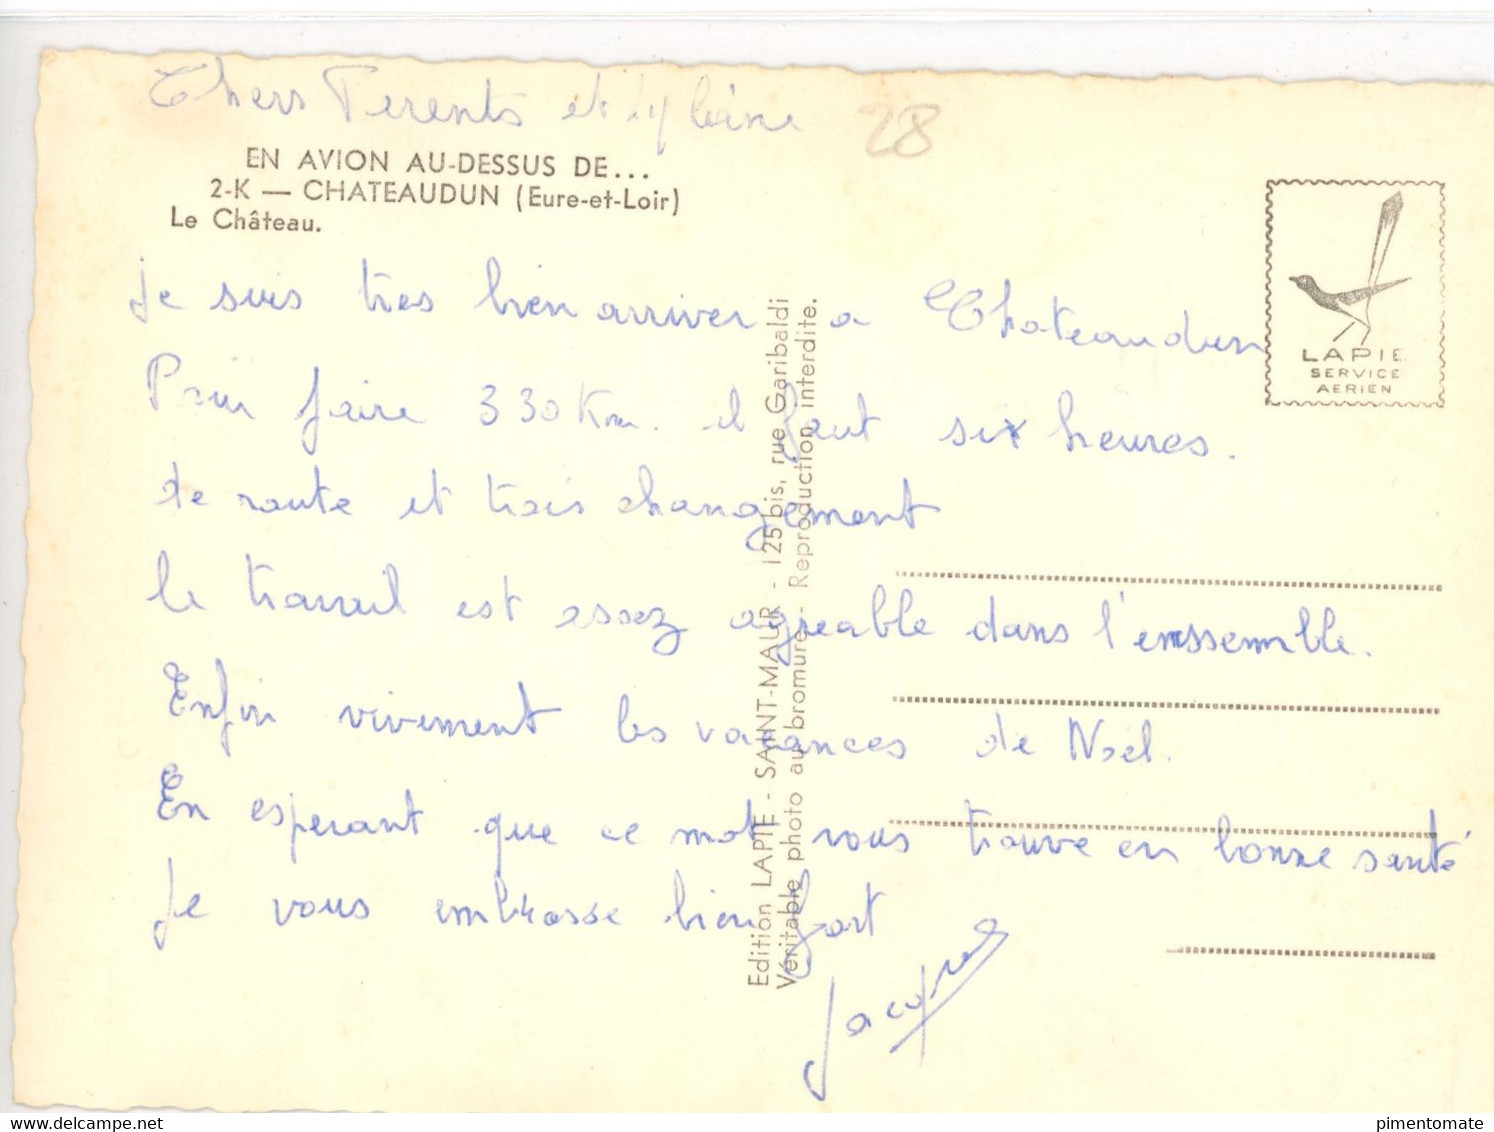 Chers Perents et
28
EN AVION AU-DESSUS DE...
2-K — CHATEAUDUN (Eure-et-Loir)
Le Château.
LAPIE
SERVICE
AERIEN
Je suis tres bien arriver a Chateaudun
Pour faire 330 Km. il faut six heures.
de route et trois changement
le travail est essez agreable dans l'enssemble.
Enfin vivement les vacances de Noel.
En esperant que ce mot vous trouve en bonne santé
Je vous embrasse bien fort
Jacques
Edition LAPIE - SAINT-MAUR - 125 bis, rue Garibaldi
Véritable photo au bromure - Reproduction interdite.
pimentomate